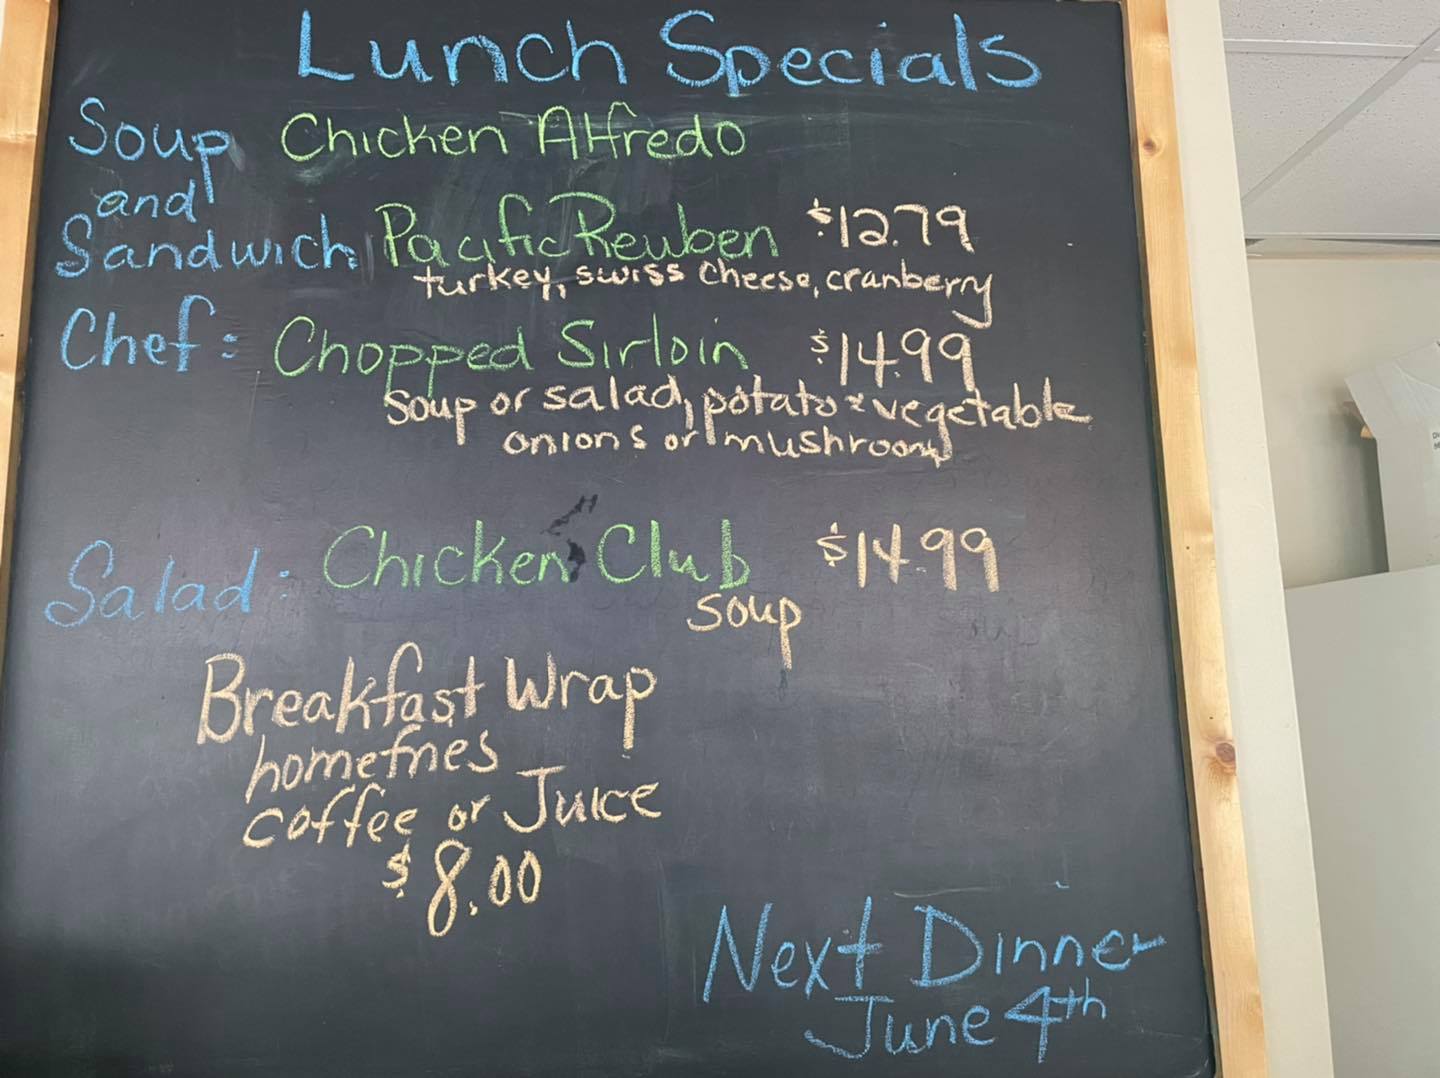 Lunch Specials
Soup Chicken Alfredo
and
Sandwich Pacific Reuben $12.79
turkey, swiss cheese, cranberry
Chef: Chopped Sirloin $14.99
soup or salad, potato & vegetable
onions or mushroom
Salad: Chicken Club $14.99
soup
Breakfast Wrap
homefries
coffee or Juice
$8.00
Next Dinner
June 4th